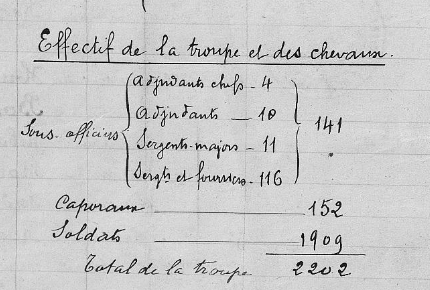 Effectif de la troupe et des chevaux.
Adjudants chefs - 4
Adjudants — 10
Sous-officiers 141
Sergents-majors - 11
Sergts et fourriers - 116
Caporaux 152
Soldats 1909
Total de la troupe 2202